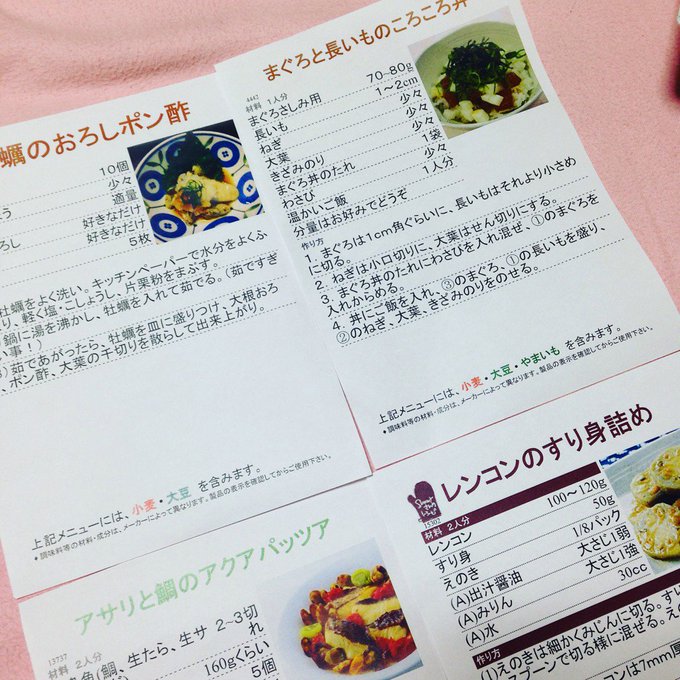 蠣のおろしポン酢
10個
う 少々
適量
ろし 好きなだけ
好きなだけ
5枚
牡蠣をよく洗い。キッチンペーパーで水分をよくふ
り、軽く塩・こしょうし、片栗粉をまぶす。
鍋に湯を沸かし、牡蠣を入れて茹でる。(茹ですぎ
い事!)
)茹であがったら、牡蠣を皿に盛りつけ、大根おろ
、ポン酢、大葉の千切りを散らして出来上がり。
上記メニューには、小麦・大豆 を含みます。
*調味料等の材料・成分は、メーカーによって異なります。製品の表示を確認してからご使用下さい。
まぐろと長いものころころ丼
4442
材料 1人分
まぐろさしみ用 70~80g
長いも 1~2cm
ねぎ 少々
大葉 少々
きざみのり 1袋
まぐろ丼のたれ 少々
わさび 1人分
温かいご飯
分量はお好みでどうぞ
作り方
1. まぐろは1cm角ぐらいに、長いもはそれより小さめ
に切る。
2. ねぎは小口切りに、大葉はせん切りにする。
3. まぐろ丼のたれにわさびを入れ混ぜ、①のまぐろを
入れからめる。
4. 丼にご飯を入れ、③のまぐろ、①の長いもを盛り、
②のねぎ、大葉、きざみのりをのせる。
上記メニューには、小麦・大豆・やまいも を含みます。
*調味料等の材料・成分は、メーカーによって異なります。製品の表示を確認してからご使用下さい。
アサリと鯛のアクアパッツア
13737
材料 2人分
魚(鯛、生たら、生サ 2~3切
れ
160gくらい
5個
レンコンのすり身詰め
15302
材料 2人分
レンコン 100~120g
すり身 50g
えのき 1/8パック
(A)出汁醤油 大さじ1弱
(A)みりん 大さじ1強
(A)水 30cc
作り方
(1)えのきは細かくみじんに切る。す
スプーンで切る様に混ぜる。え
コンは7mm厚